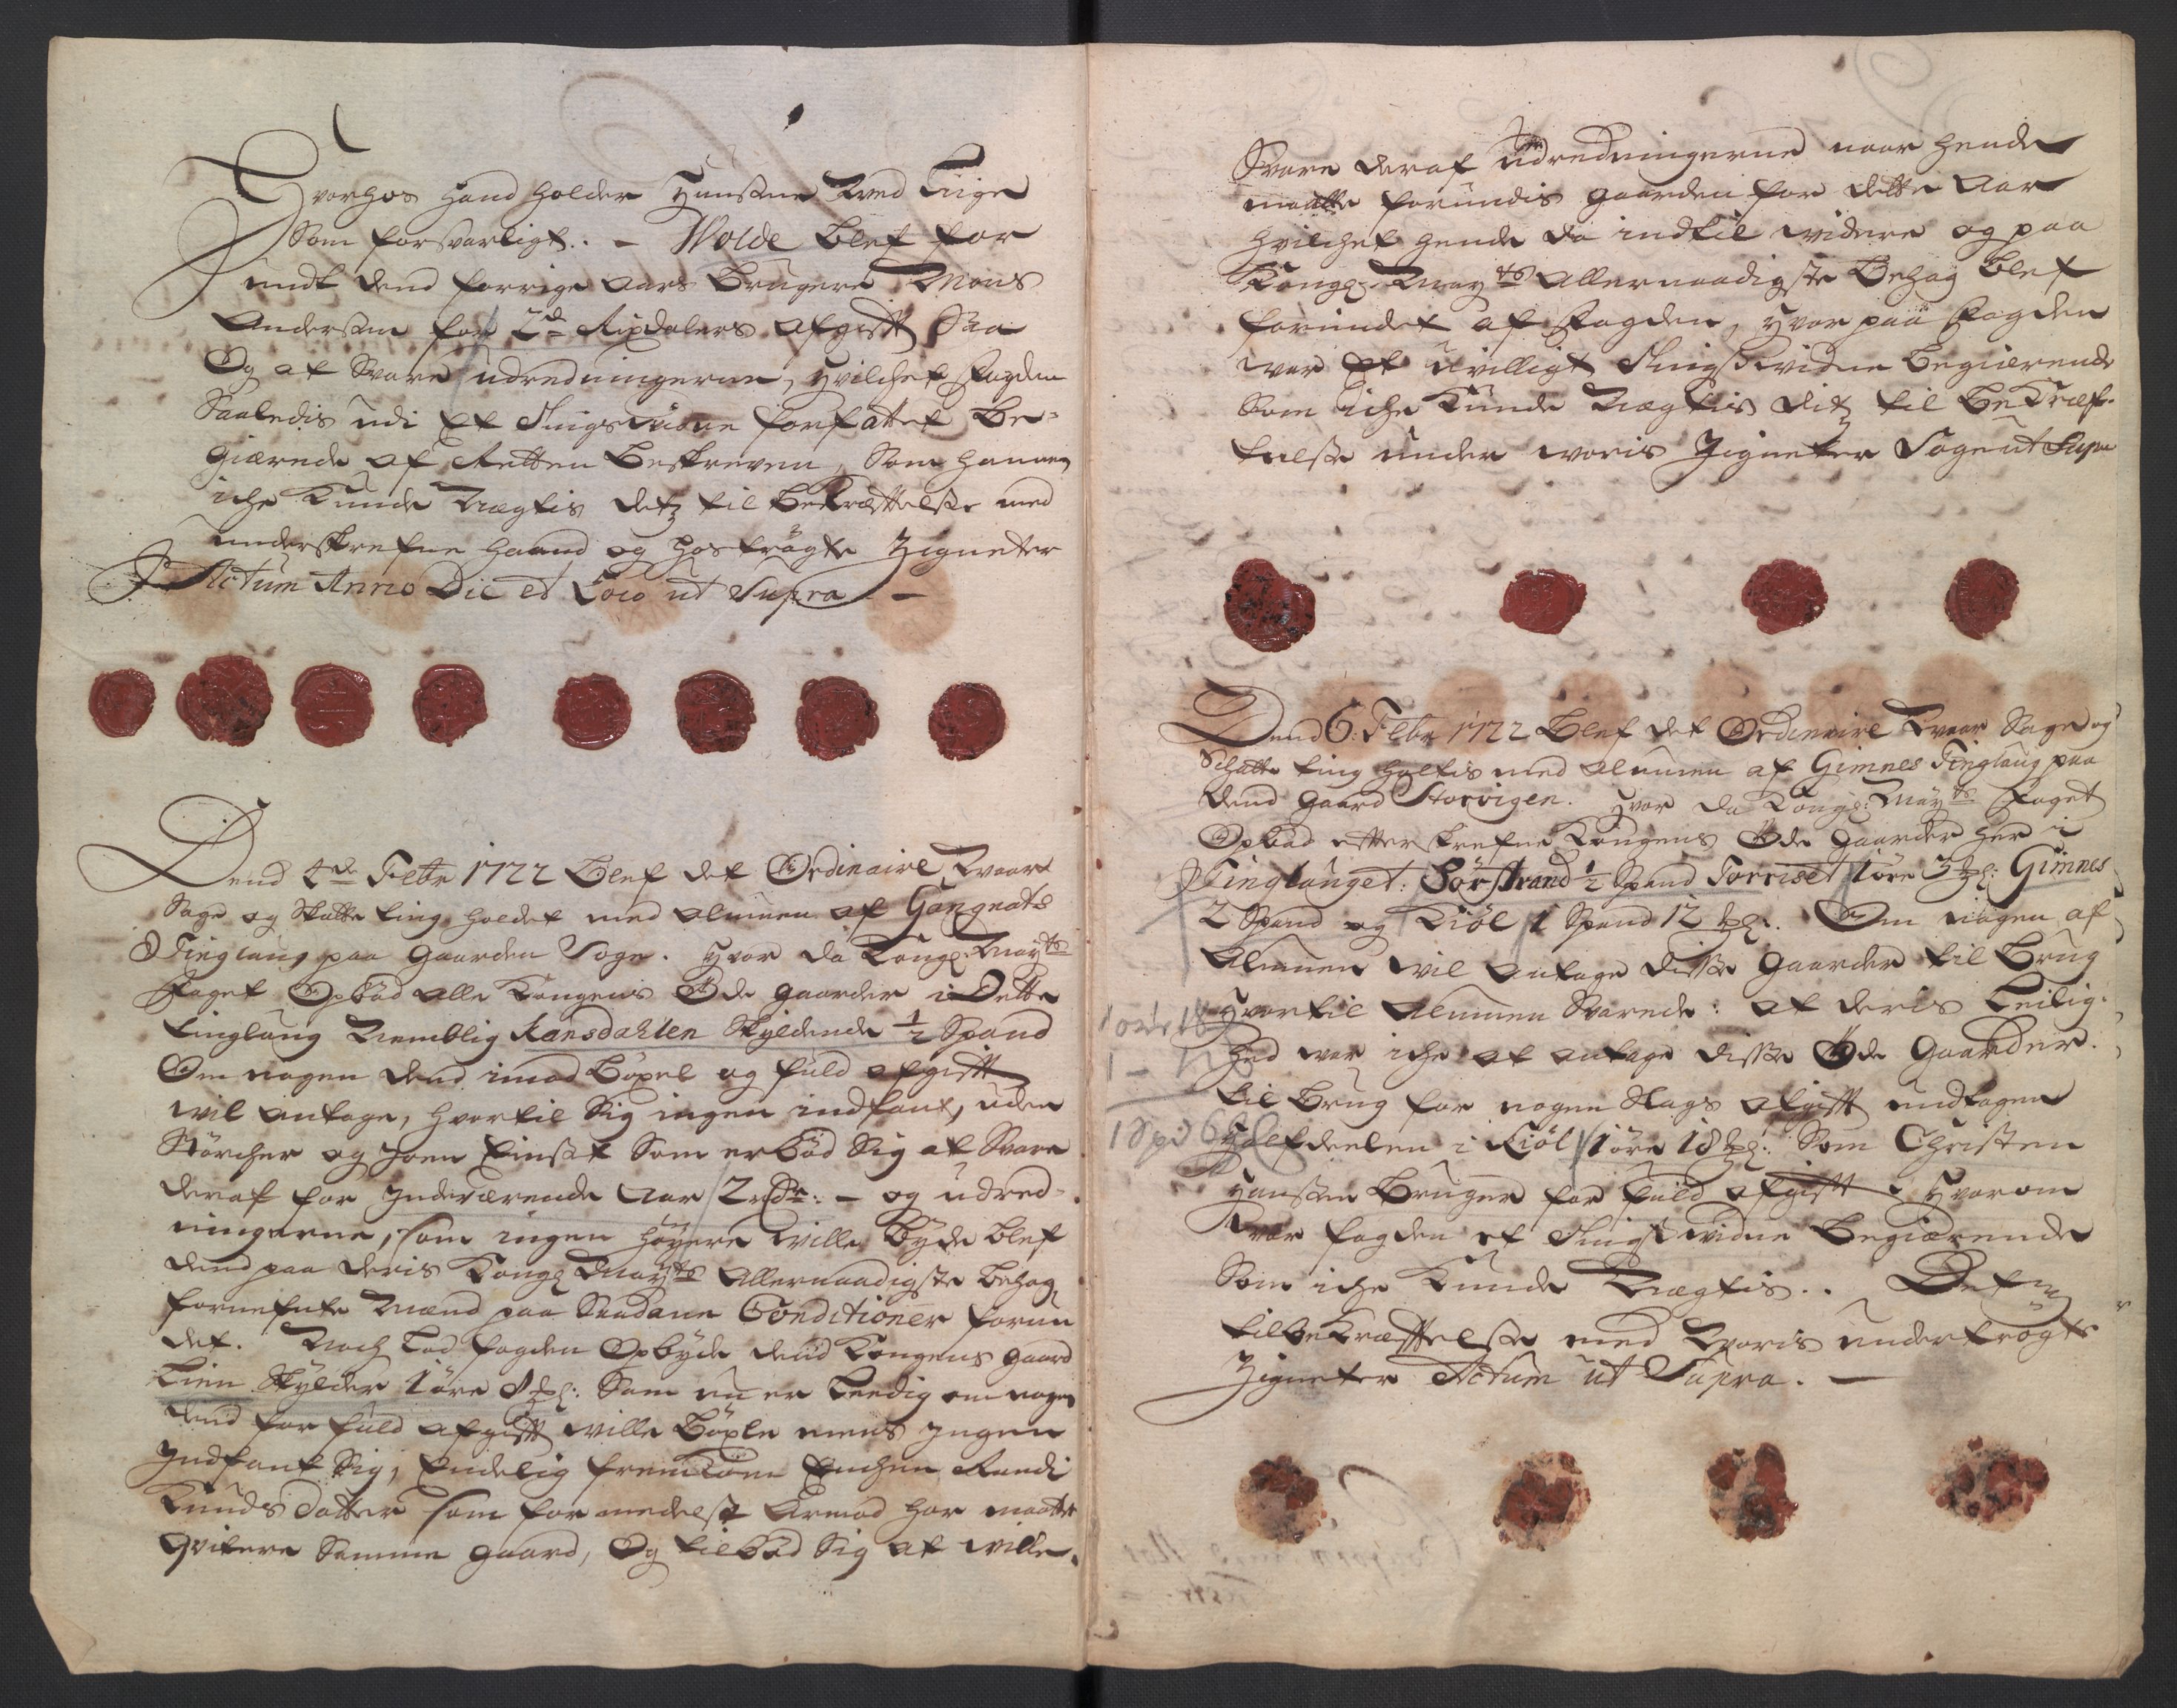 Hvorhos hand holder Hussene ved Liige
Som forsvarligt. – Wolde blef for
undt dend forrige aars Brugere Mons
Andersen for 2de Rixdalers afgift Saa
Og at Svare udredningerne, Hvilchet Fogden
Saaledis udi Et Tingsvidne forfattet Be-
giærede af Retten Beskreven, Som hannem
iche Kunde Nægtis detz til Bekræftelsse med
underskrefne haand og hoströgte Zigneter
Actum Anno Die et Loco ut Supra –
Dend 4de Febr 1722 Blef det Ordinaire Vaar
Sage og Skatte ting holdet med almuen af Gangnats
Tinglaug paa gaarden Soge. Hvor da Kongl: Mayts
Foget Opböd alle Kongens Öde gaarder i Dette
tinglaug Nemblig Ransdahlen Skyldende 1/2 Spand
Om nogen dend imod Böxel og fuld afgift
wil antage, hvortil Sig ingen indfant, uden
Störcher og Joen Einset Som erböd Sig at Svare
deraf for Inderværende Aar 2 rdr: – og udred-
ningerne, som ingen høyere ville byde blef
dend paa deris Kongl Mayts Allernaadigste behag
fornefnte Mænd paa Saadane Conditioner forun
det. Noch Lod fogden Opbyde dend Kongens gaard
Lien Skylder 1 öre 8 mkl: Som nu er Leedig om nogen
dend for fuld afgift wille Böxle mens Ingen
Indfant Sig, Endelig fremKom Enchen Randi
Knuds Datter som formedelst Armod har maatt
Qvitere Samme gaard, Og tilböd Sig at wille
Svare deraf udredningerne naar hende
maatte forundis gaarden for dette Aar
hvilchet hende da indtil widere og paa
Kongl. Mayts Allernaadigste Behag blef
forundet af Fogden, Hvor paa Fogden
war Et uvilligt Tingsvidne begierende
Som iche Kunde Nægtis ditz til BeKræf-
telsse under woris Zigneter Soge ut Supra
Dend 6: Febr 1722 Blef det Ordinaire Vaar Sage og
Schatte ting holtis med almuen af Gimnes Tinglaug paa
dend gaard Storvigen. Hvor da Kongl: Mayts Foget
Opböd efterskrefne Kongens Öde gaarder her i
Tinglauget: Sörstrand 1/2 Spand Torriset 1 öre 3 mkl: Gimnes
2 Spand og Kiöl 1 Spand 12 mkl. Om nogen af
Almuen wil antage disse gaarder til Brug
Hvortil Almuen Svarede: at deris Leilig-
hed war iche at antage disse Öde Gaarder
til Brug for nogen Slags afgift undtagen
Halfdeelen i Kiöl 1 öre 18 mkl: Som Christen
Hanssen Bruger for fuld afgift. Hvorom
war fogden et Tingsvidne Begiærende
Som iche Kunde Nægtis. Detz
til beKræftelsse med Woris undertrögte
Zigneter Actum ut Supra. –